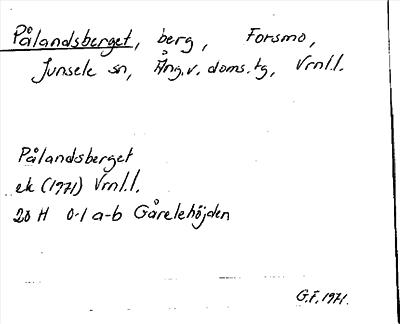 Pålandsberget, berg, Forsmo,
Junsele sn, Ång.v. doms.tg, Vrnl.l.
Pålandsberget
ek (1971) Vrnl.l.
20 H 0-1 a-b Gårelehöjden
G.F. 1971.